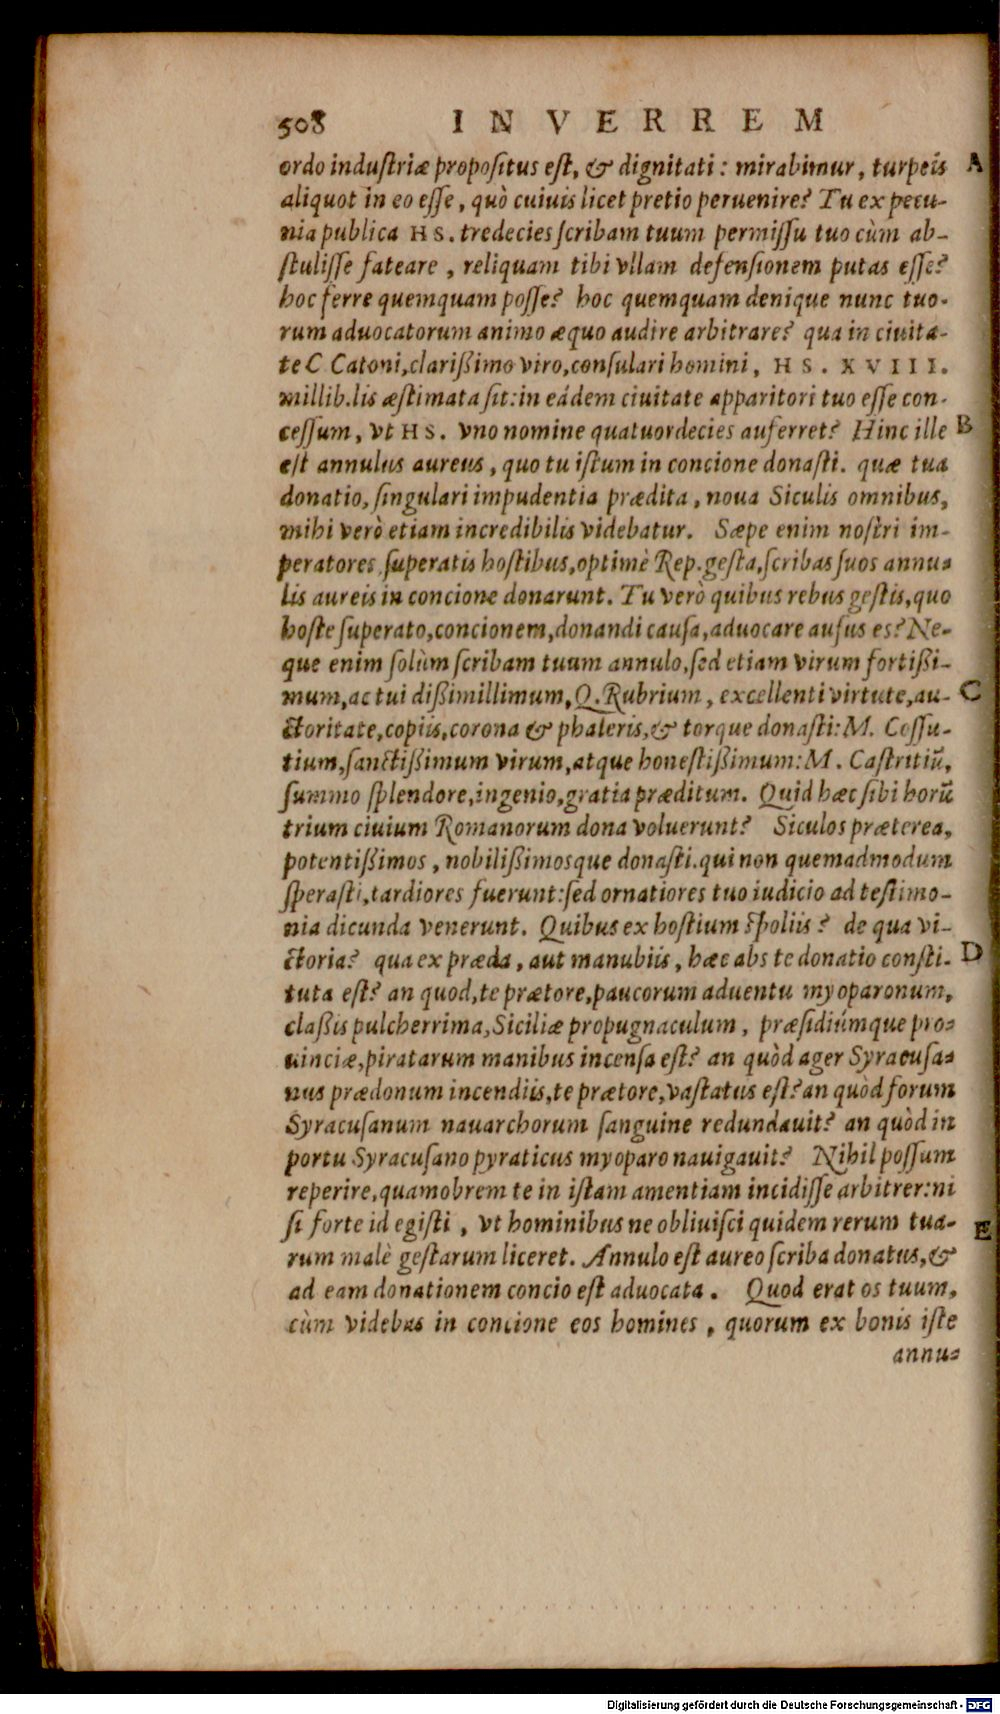 508 IN VERREM
ordo industriæ propositus est, & dignitati: mirabimur, turpeis A
aliquot in eo esse, quò cuiuis licet pretio peruenire? Tu ex pecu-
nia publica HS. tredecies scribam tuum permissu tuo cùm ab-
stulisse fateare, reliquam tibi vllam defensionem putas esse?
hoc ferre quemquam posse? hoc quemquam denique nunc tuo-
rum aduocatorum animo æquo audire arbitrare? qua in ciuita-
te C Catoni, clarißimo viro, consulari homini, HS. XVIII.
millib. lis æstimata sit: in eádem ciuitate apparitori tuo esse con-
cessum, vt HS. vno nomine quatuordecies auferret? Hinc ille B
est annulus aureus, quo tu istum in concione donasti. quæ tua
donatio, singulari impudentia prædita, noua Siculis omnibus,
mihi verò etiam incredibilis videbatur. Sæpe enim nostri im-
peratores, superatis hostibus, optimè Rep. gesta, scribas suos annu-
lis aureis in concione donarunt. Tu verò quibus rebus gestis, quo
hoste superato, concionem, donandi causa, aduocare ausus es? Ne-
que enim solùm scribam tuum annulo, sed etiam virum fortißi-
mum, ac tui dißimillimum, Q. Rubrium, excellenti virtute, au- C
ctoritate, copiis, corona & phaleris, & torque donasti: M. Cossu-
tium, sanctißimum virum, atque honestißimum: M. Castritiũ,
summo splendore, ingenio, gratia præditum. Quid hæc sibi horũ
trium ciuium Romanorum dona voluerunt? Siculos præterea,
potentißimos, nobilißimosque donasti. qui non quemadmodum
sperasti, tardiores fuerunt: sed ornatiores tuo iudicio ad testimo-
nia dicunda venerunt. Quibus ex hostium spoliis? de qua vi-
ctoria? qua ex præda, aut manubiis, hæc abs te donatio consti- D
tuta est? an quod, te prætore, paucorum aduentu myoparonum,
claßis pulcherrima, Siciliæ propugnaculum, præsidiúmque pro-
uinciæ, piratarum manibus incensa est? an quòd ager Syracusa-
nus prædonum incendiis, te prætore, vastatus est? an quòd forum
Syracusanum nauarchorum sanguine redundauit? an quòd in
portu Syracusano pyraticus myoparo nauigauit? Nihil possum
reperire, quamobrem te in istam amentiam incidisse arbitrer: ni
si forte id egisti, vt hominibus ne obliuisci quidem rerum tua- E
rum malè gestarum liceret. Annulo est aureo scriba donatus, &
ad eam donationem concio est aduocata. Quod erat os tuum,
cùm videbas in concione eos homines, quorum ex bonis iste
annu-
Digitalisierung gefördert durch die Deutsche Forschungsgemeinschaft - DFG